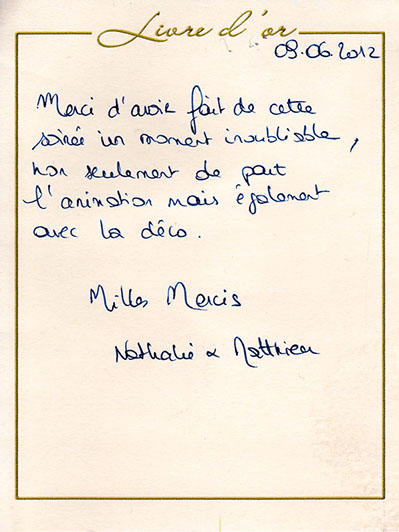 Livre d'or
09.06.2012
Merci d'avoir fait de cette
soirée un moment inoubliable,
non seulement de part
l'animation mais également
avec la déco.
Milles Mercis
Nathalie & Matthieu